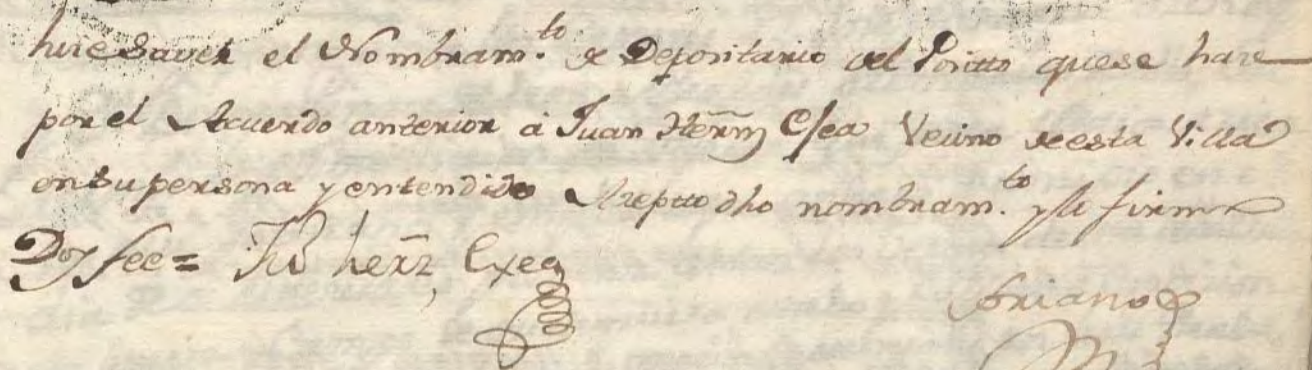 hice saver el Nombram.to de Depositario del Posito quese hace
por el Acuerdo anterior á Juan Hern̄z Exea Vecino deesta Villa
ensu persona y entendido Azepto dho nombram.to y lo firmo
Doy fee = Ju.o hern̄z, Exea
Soriano